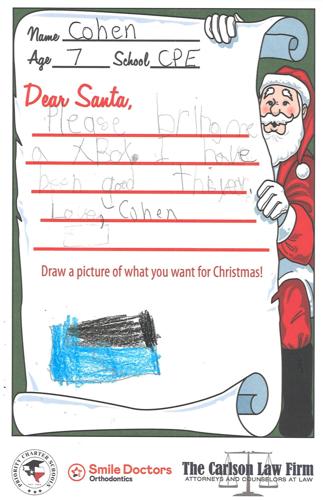 Name Cohen
Age 7 School CPE
Dear Santa,
Please bring me
a XBox. I have
been good this year
Love, Cohen
Draw a picture of what you want for Christmas!
PRIORITY CHARTER SCHOOLS
Smile Doctors
Orthodontics
The Carlson Law Firm
ATTORNEYS AND COUNSELORS AT LAW